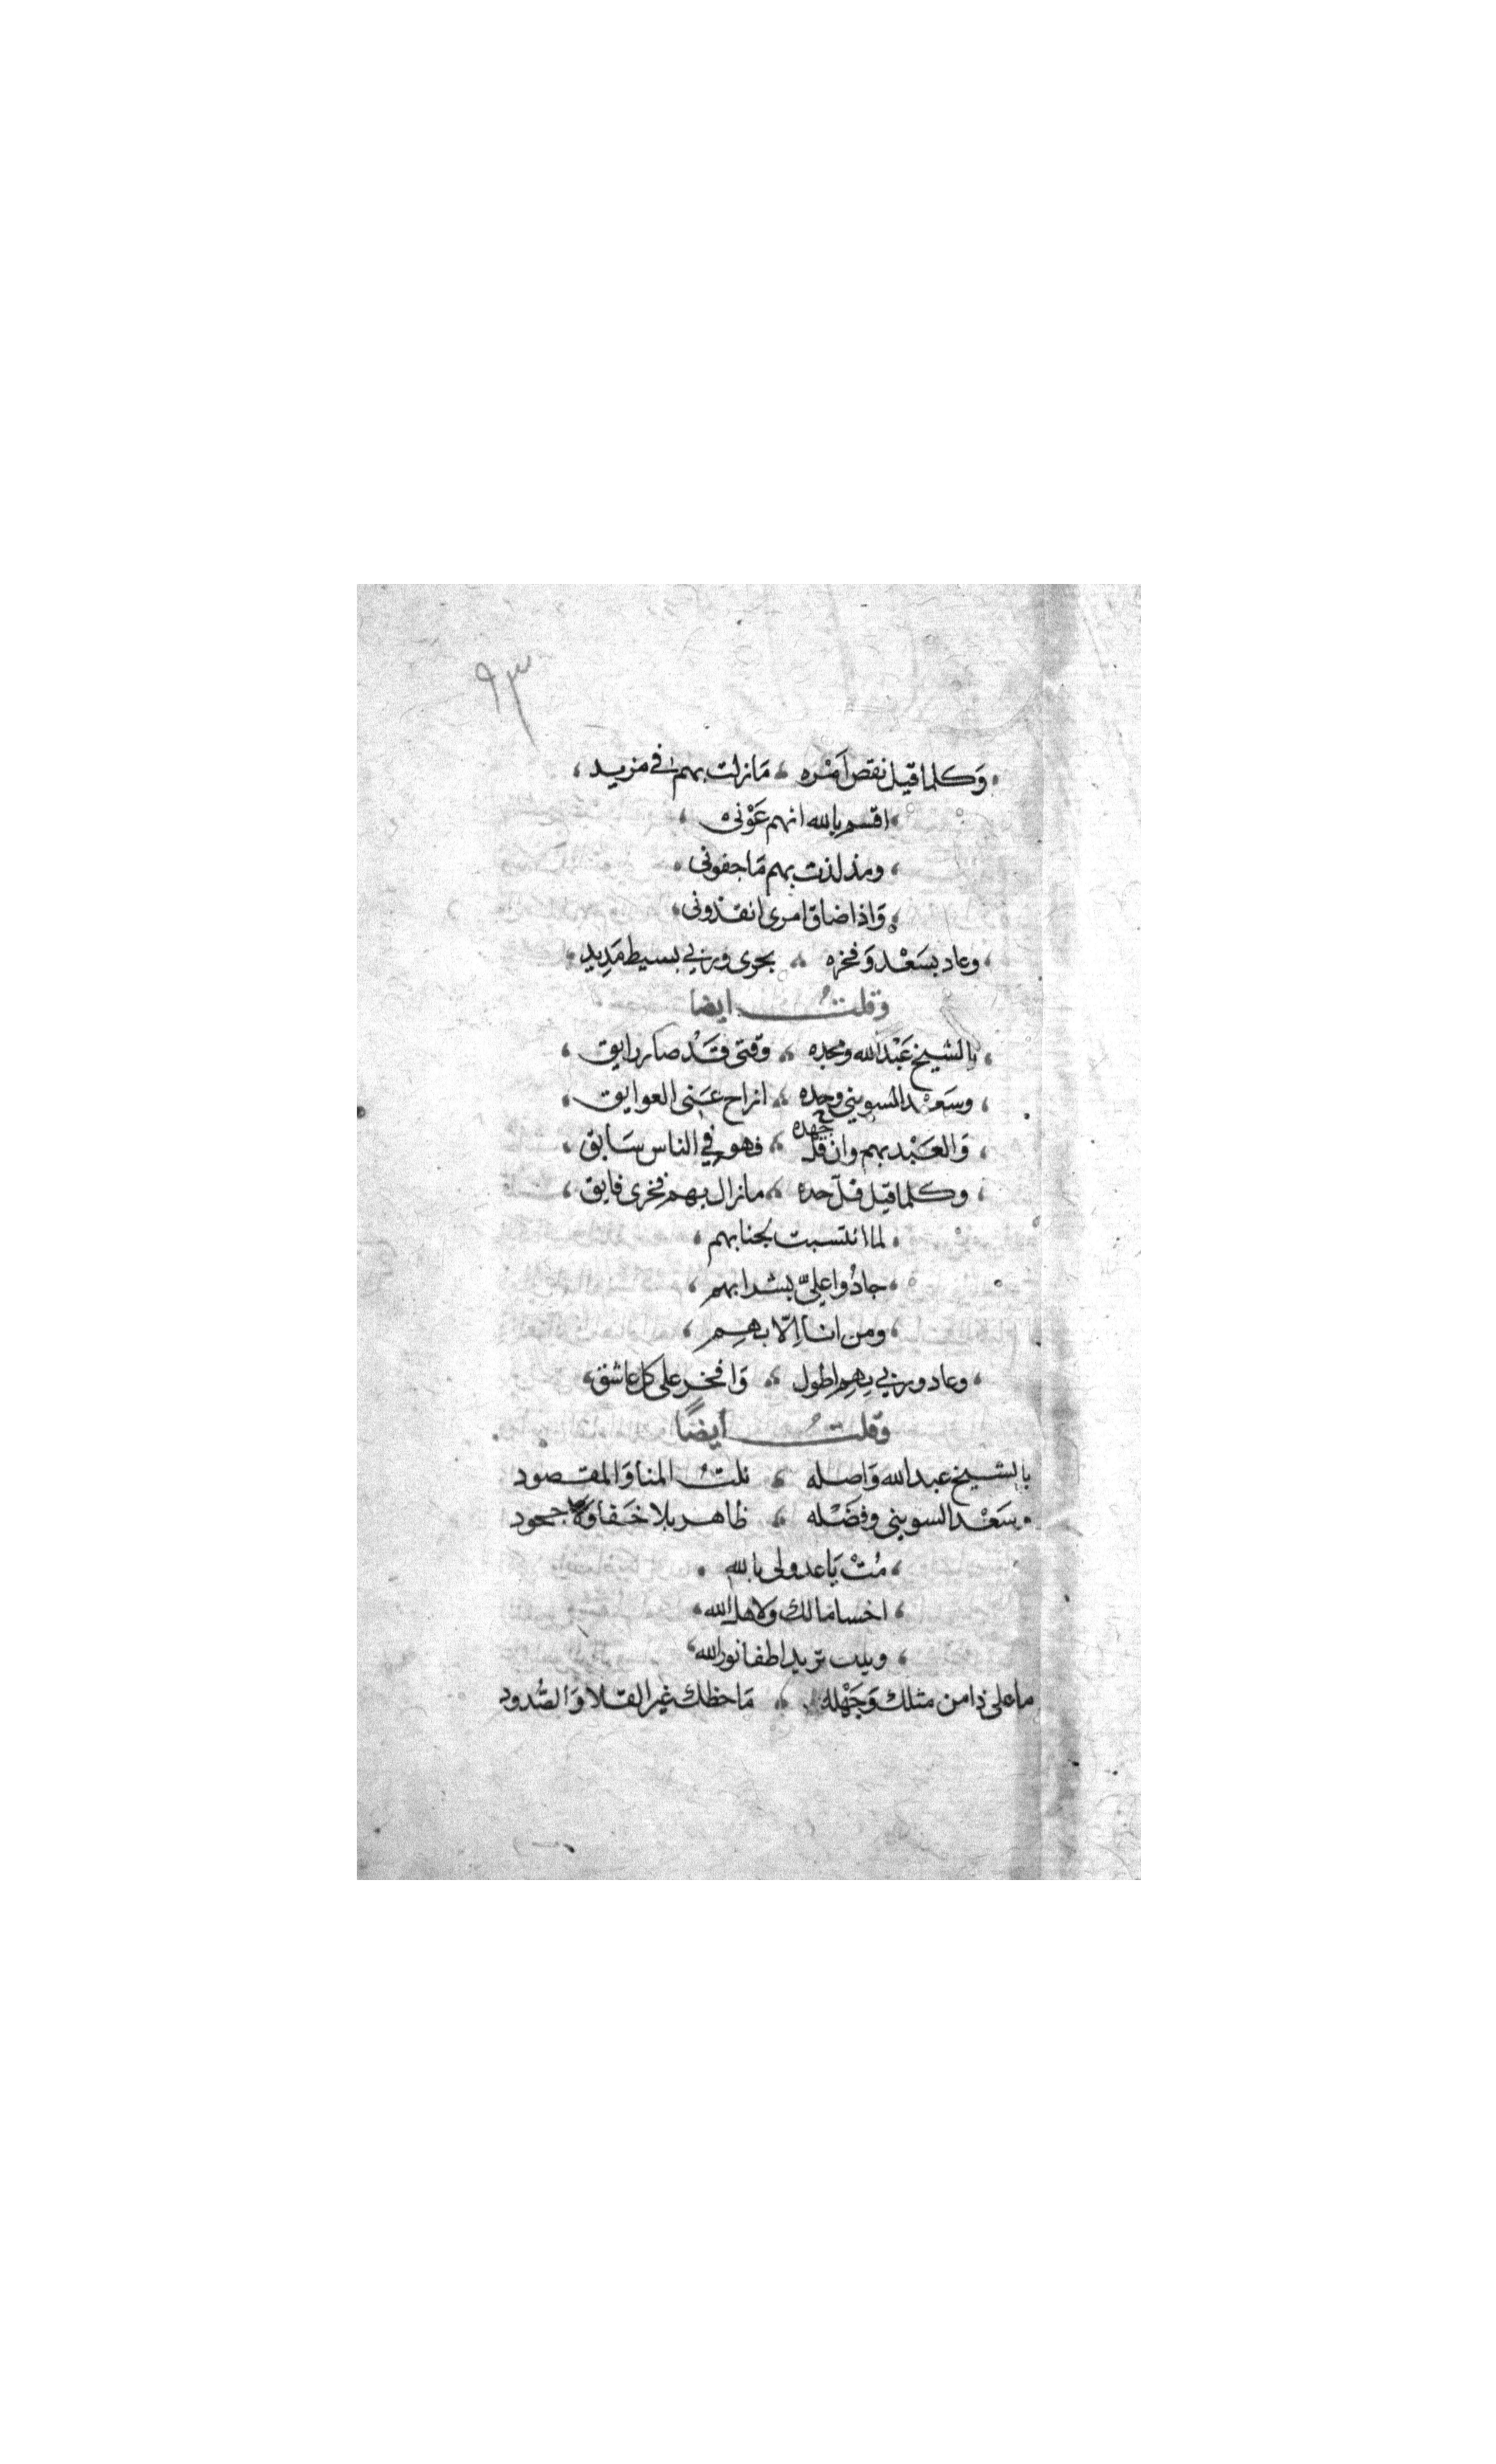 ٩٣
وَكلما قيل نقص اَمْره ، مَازلت بهم في مزيد ،
، اقسم بالله انهم عَوْني ،
، ومذ لذت بهم مَا جفوني ،
، وَاذا ضاق امري انقذوني ،
، وعاد بسَعْد وَفخره ، بحري وزني بسيط مَدِيد ،
وقلتُ ايضا
، بالشيخ عَبْد الله ومجده ، وَقتي قَدْ صار رايق ،
، وسَعْد السويني وجده ، انزاح عَنى العوايق ،
، وَالعَبْد بهم وان قل جهده ، فهو في الناس سَابق ،
، وكلما قيل فلّ حده ، مازال بهم فخرى فايق ،
، لما انتسبت بجنابهم ،
، جادُوا عليّ بشرابهم ،
، ومن انا اِلّا بهِم ،
، وعاد وزني بِهِم اطول ، وَافخر على كل عاشق ،
وقلتُ اَيضًا
بالشيخ عبد الله وَاصله ، نلتُ المنا وَالمقصود
، وسَعْد السويني وفضَله ، ظاهر بلا خَفا وَلا جحود
، مُتْ يَا عدولى بالله ،
، اخسا مالك ولاهل الله ،
، ويلك تريد اطفا نور الله ،
ما على ذا من مثلك وَجَهْله ، مَا حظك غير القلا وَالصُّدود